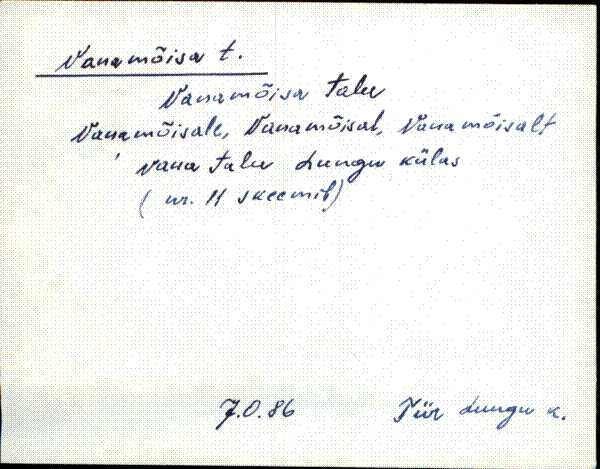 Vanamõisa t.
Vanamõisa talu
Vanamõisale, Vanamõisal, Vanamõisalt
vana talu Lungu külas
(nr. 11 skeemil)
7.0.86 Tiir Lungu k.